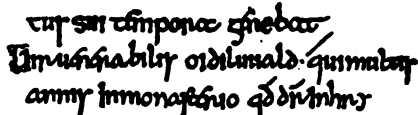 tus sui tempora gerebat
Uir uenerabilis oidiluuald· qui multis
annis in monasterio qđ dr̄ inhry